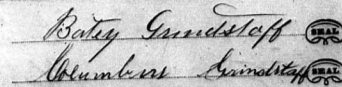 Batey Grindstaff SEAL
Columbus Grindstaff SEAL